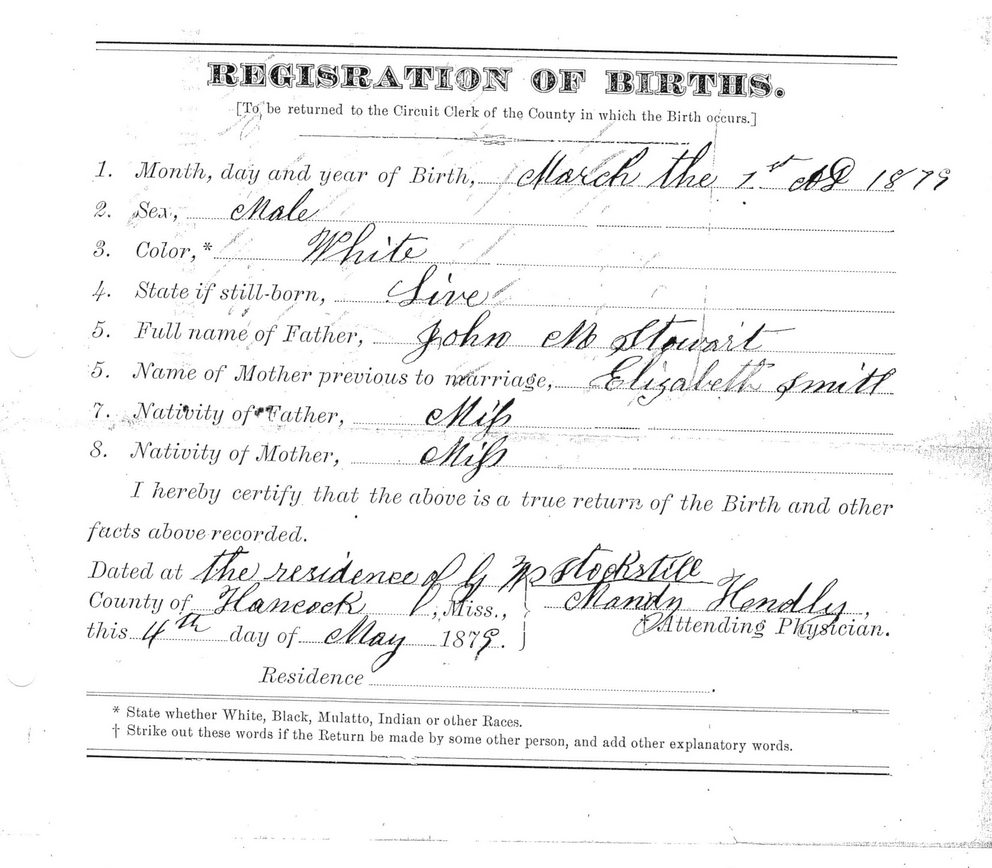 REGISRATION OF BIRTHS.
[To be returned to the Circuit Clerk of the County in which the Birth occurs.]
1. Month, day and year of Birth, March the 1st AD 1879
2. Sex, Male
3. Color,* White
4. State if still-born, Live
5. Full name of Father, John M Stewart
5. Name of Mother previous to marriage, Elizabeth Smith
7. Nativity of Father, Miss
8. Nativity of Mother, Miss
I hereby certify that the above is a true return of the Birth and other
facts above recorded.
Dated at the residence of G W Stockstill
County of Hancock, Miss., Mandy Hendly,
this 4th day of May 1879. †Attending Physician.
Residence
* State whether White, Black, Mulatto, Indian or other Races.
† Strike out these words if the Return be made by some other person, and add other explanatory words.